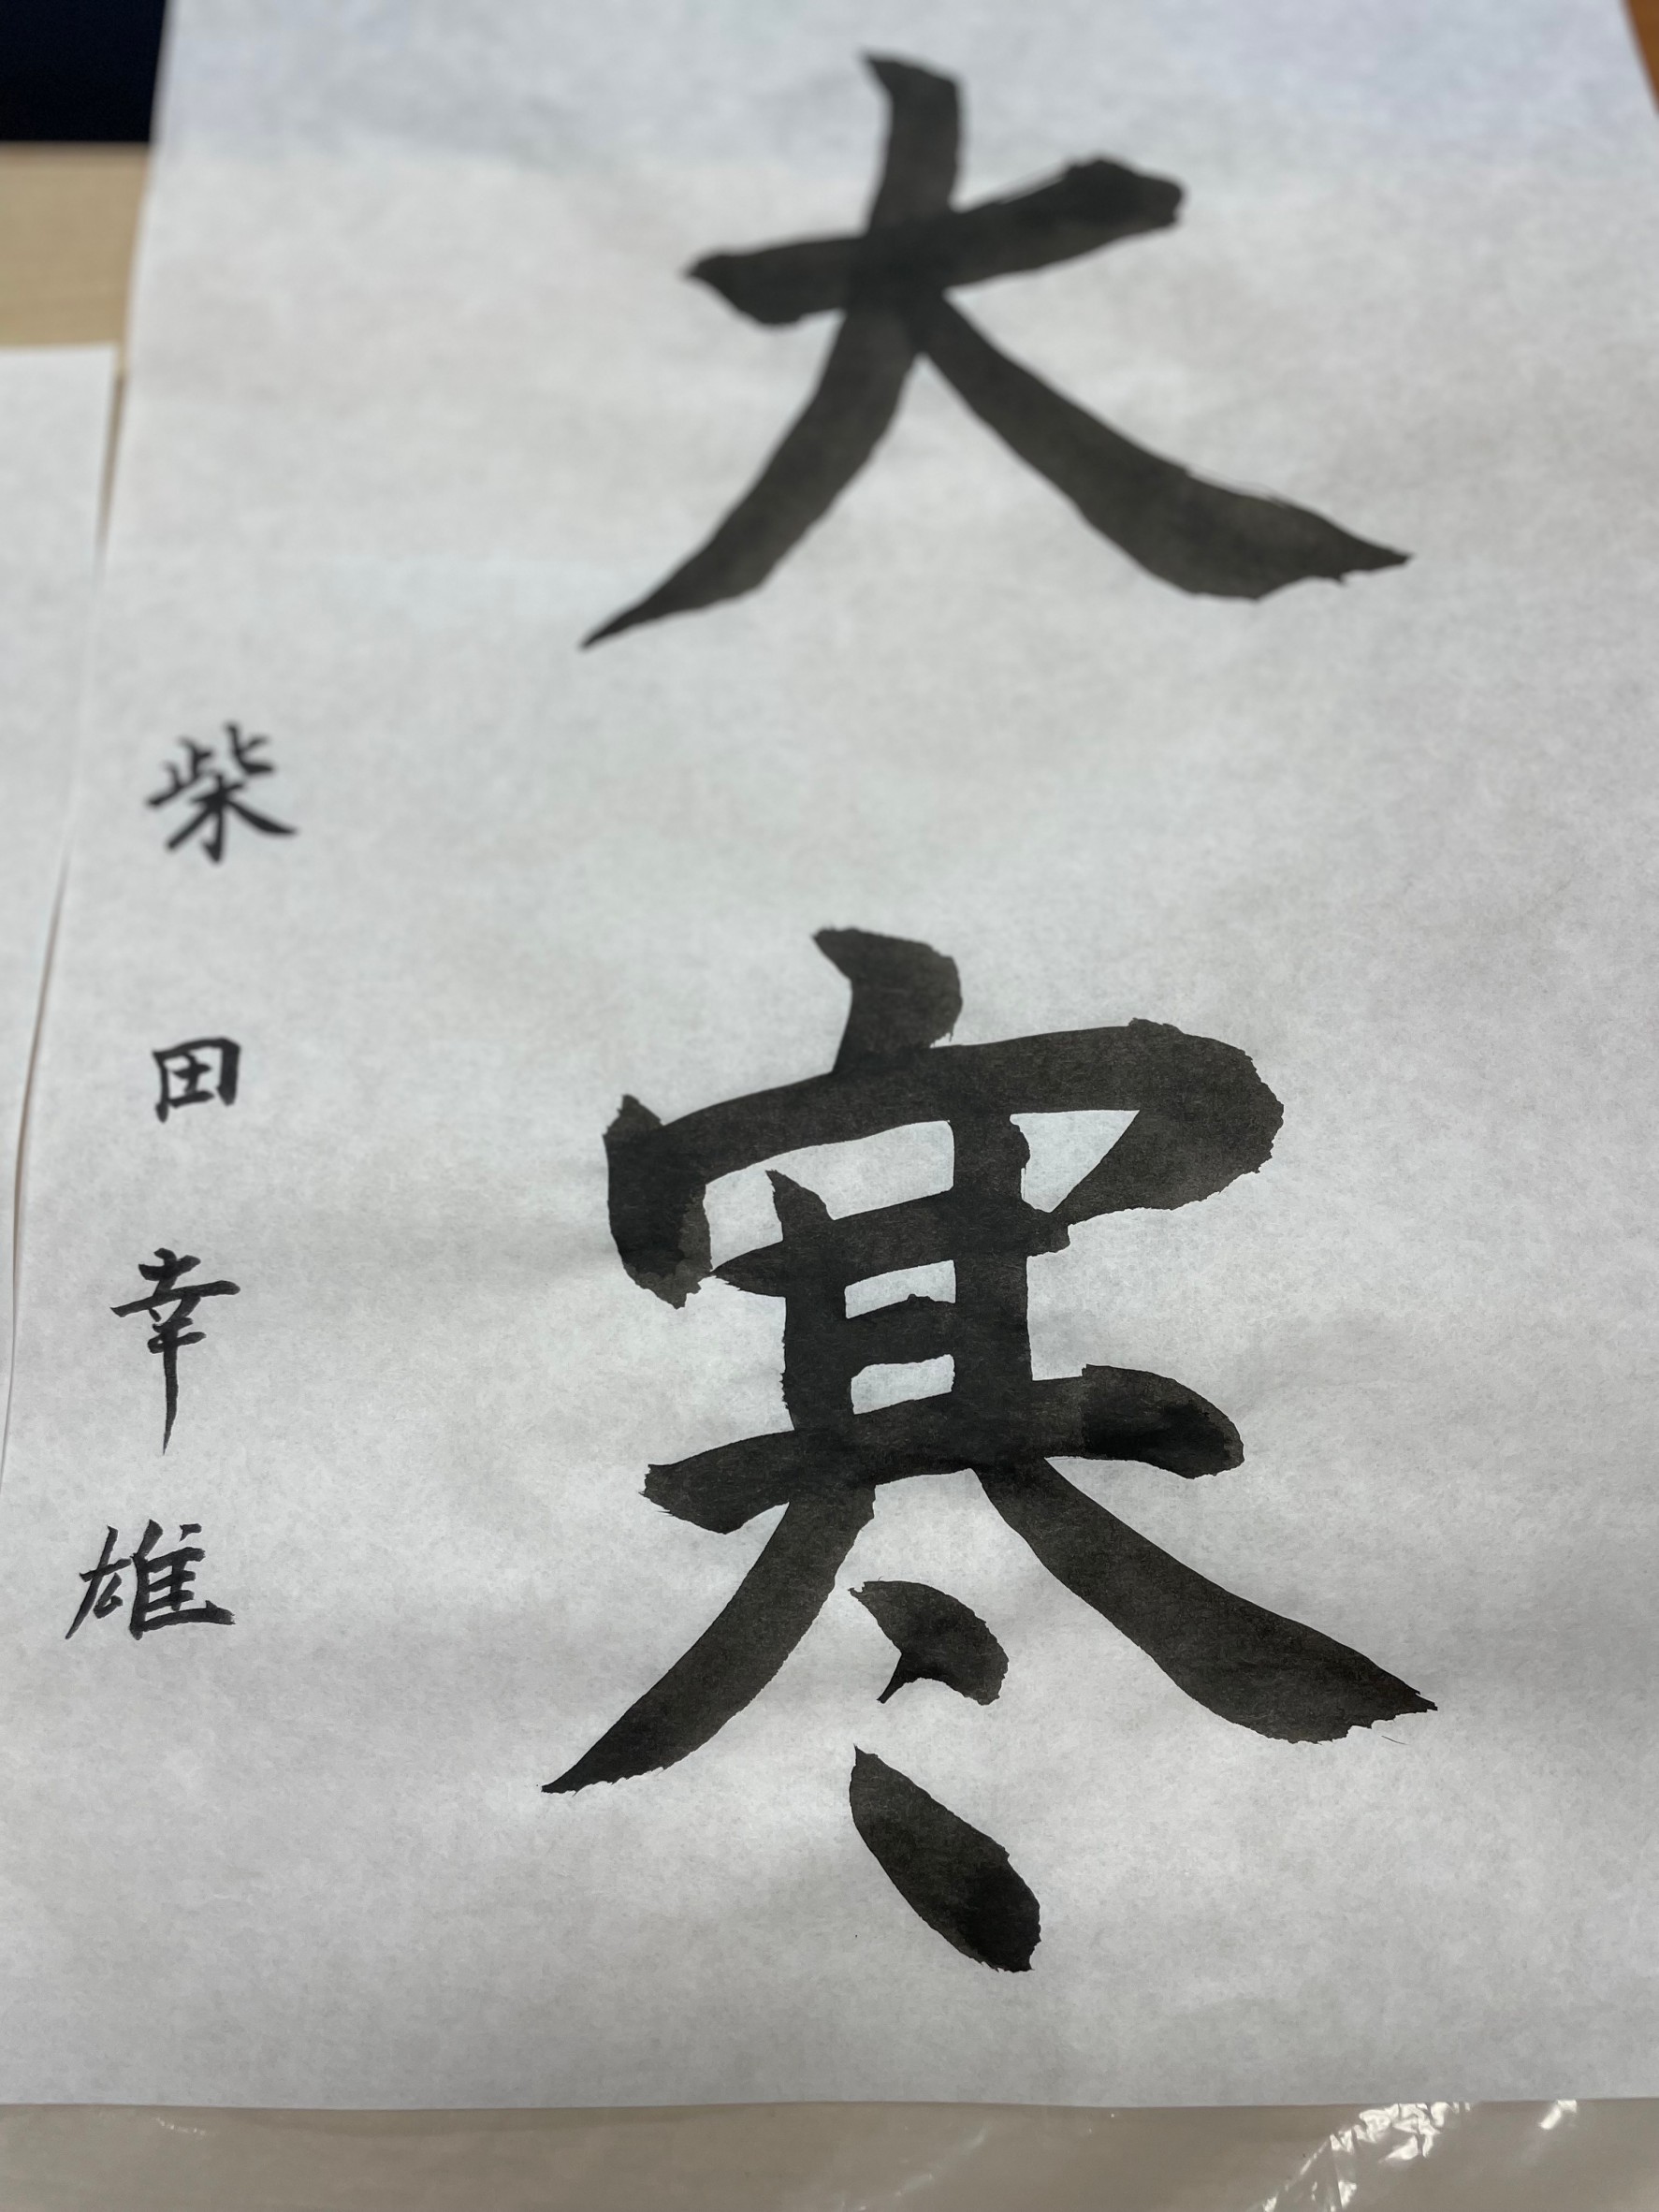 大寒
柴田幸雄